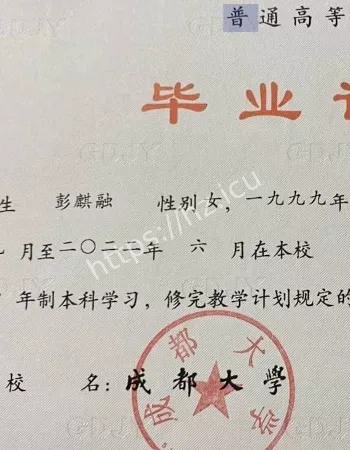 普通高等
毕业
生 彭麒融 性别女，一九九九年
月至二〇二 年 六 月在本校
年制本科学习，修完教学计划规定的
校 名：成都大学
成都大学
https://hz.icu